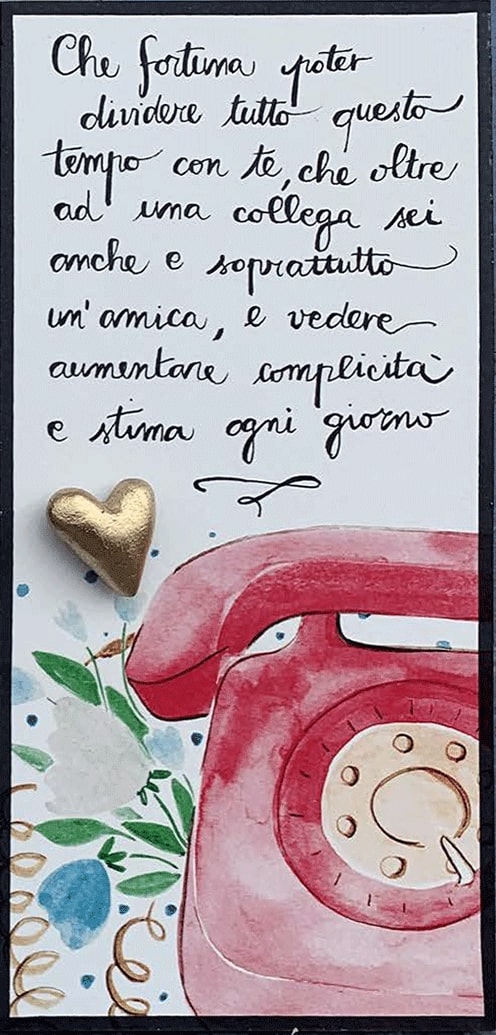 Che fortuna poter
dividere tutto questo
tempo con te, che oltre
ad una collega sei
anche e soprattutto
un'amica, e vedere
aumentare complicità
e stima ogni giorno